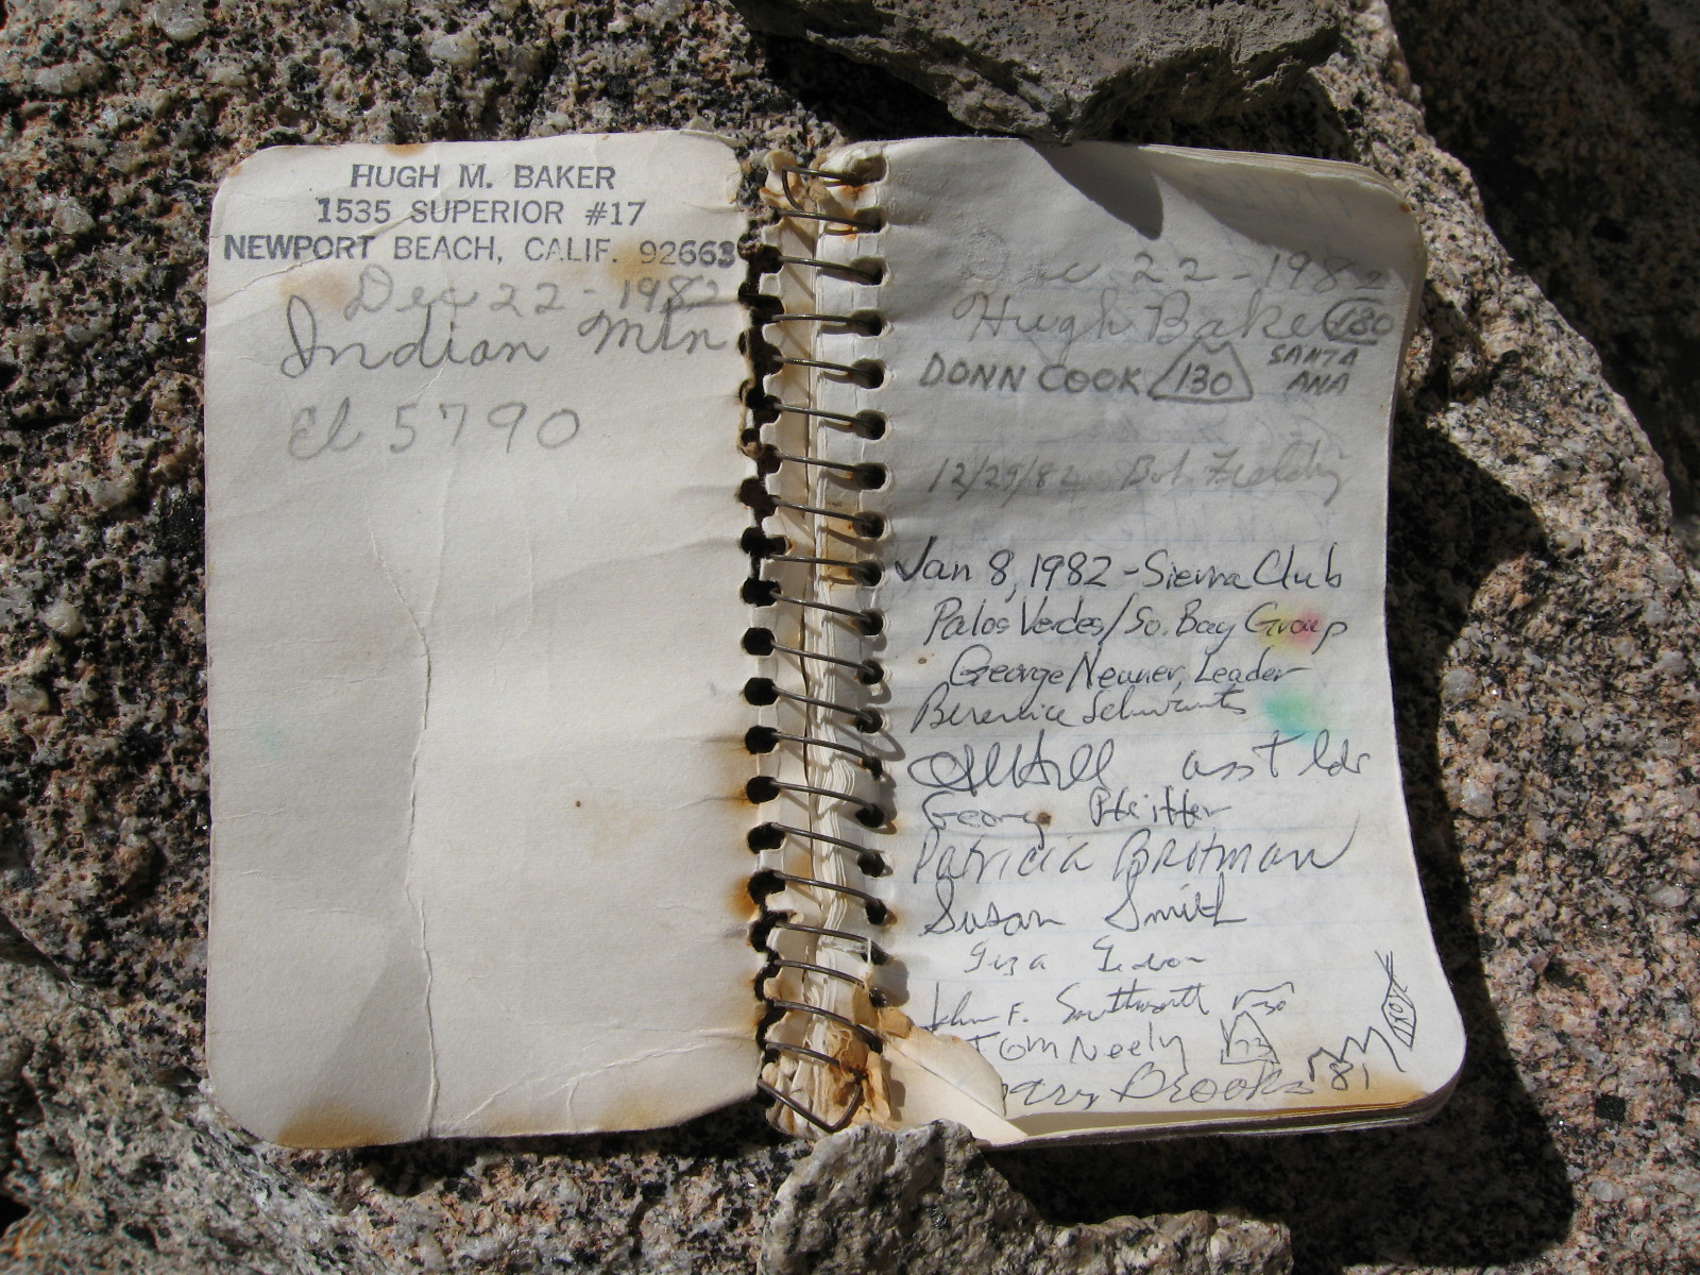 HUGH M. BAKER
1535 SUPERIOR #17
NEWPORT BEACH, CALIF. 92663
Dec 22 - 1982
Indian Mtn
El 5790
Dec 22 - 1982
Hugh Baker 180
DONN COOK 130 SANTA ANA
12/29/82 Bob
Jan 8, 1982 - Sierra Club
Palos Verdes/So. Bay Group
George Neuner, Leader
Berenice
asst ldr
George
Patricia Brotman
Susan Smith
John F. Southworth
Tom Neely
Brooks